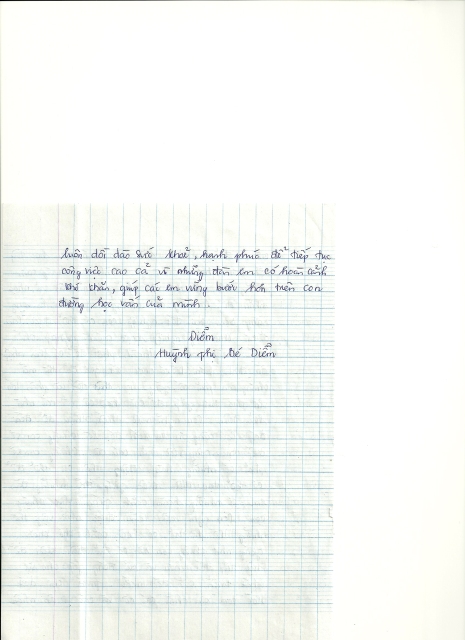 luôn dồi dào sức khoẻ, hạnh phúc để tiếp tục
công việc cao cả vì những đàn em có hoàn cảnh
khó khăn, giúp các em vững bước hơn trên con
đường học vấn của mình.
Diễm
Huỳnh phị Bé Diễm